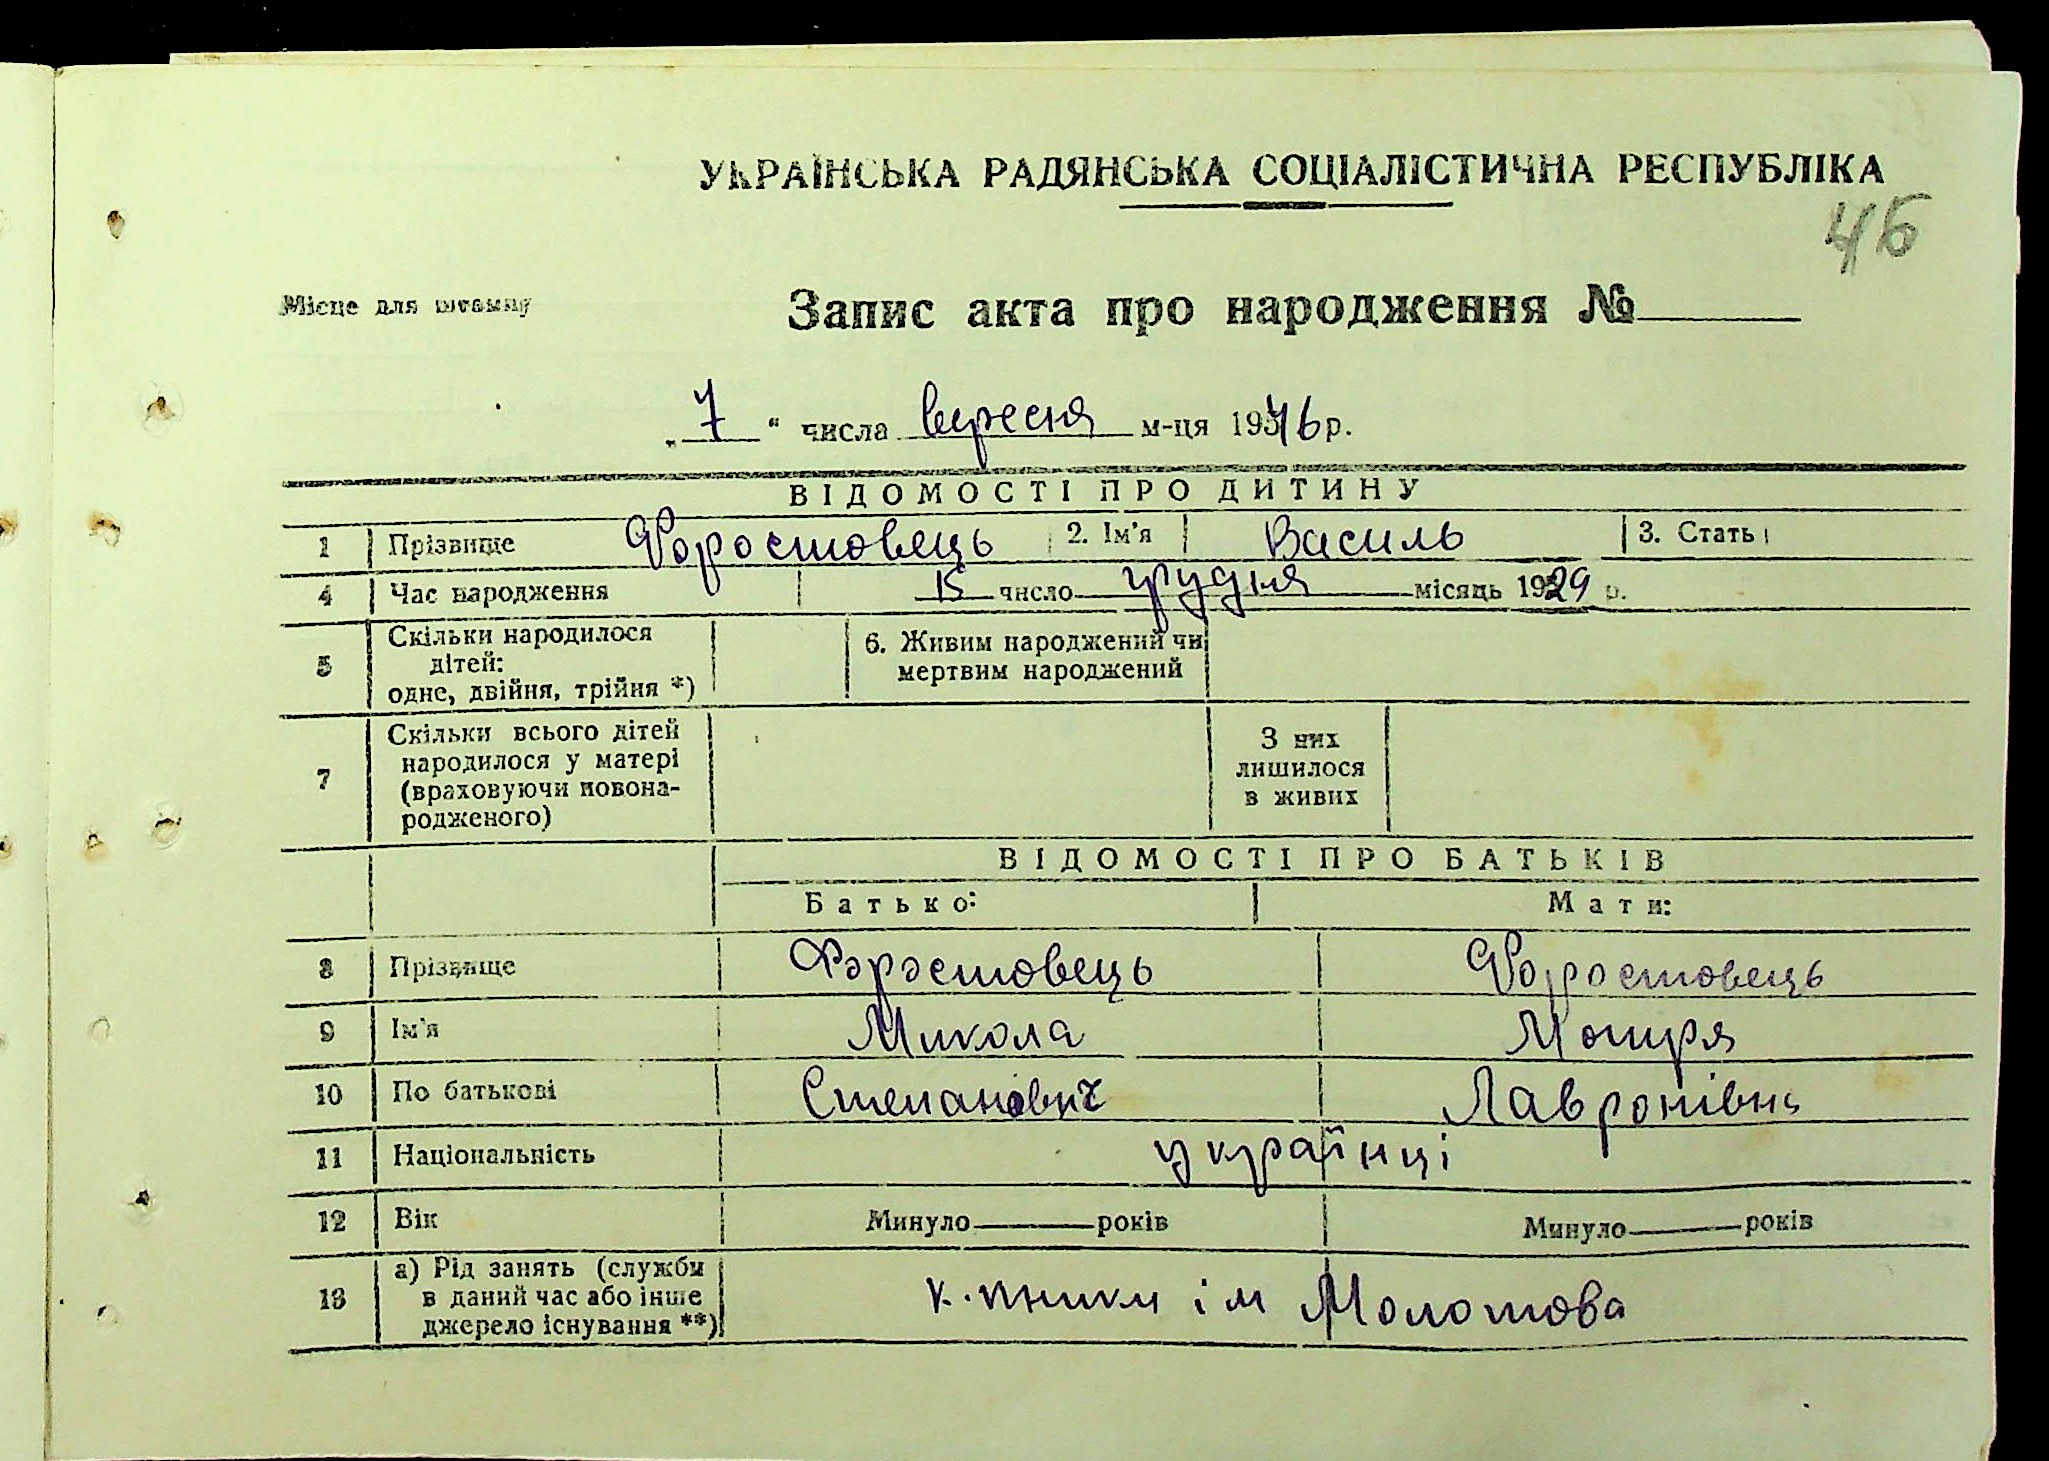 УКРАЇНСЬКА РАДЯНСЬКА СОЦІАЛІСТИЧНА РЕСПУБЛІКА
46
Місце для штампу
Запис акта про народження №
„ 7 “ числа вересня м-ця 1946 р.
ВІДОМОСТІ ПРО ДИТИНУ
1 Прізвище Форостовець 2. Ім'я Василь 3. Стать
4 Час народження 15 число грудня місяць 1929 р.
5 Скільки народилося дітей: одне, двійня, трійня *) 6. Живим народжений чи мертвим народжений
7 Скільки всього дітей народилося у матері (враховуючи новона-родженого) З них лишилося в живих
ВІДОМОСТІ ПРО БАТЬКІВ
Батько: Мати:
8 Прізвище Форостовець Форостовець
9 Ім'я Микола Мотря
10 По батькові Степанович Лавронівна
11 Національність українці
12 Вік Минуло років Минуло років
13 а) Рід занять (служби в даний час або інше джерело існування **) к-пники ім Молотова